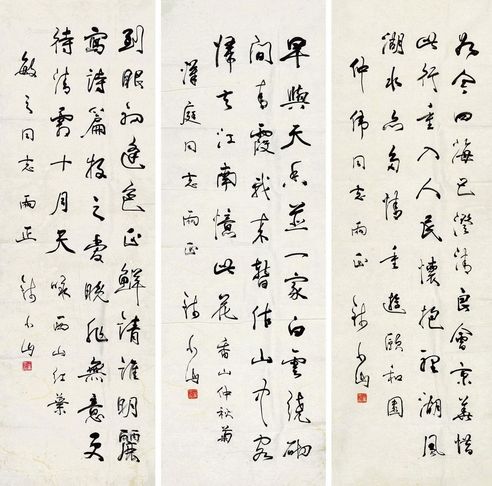 於今四海已澄清良會京華惜
此行重入人民懷抱裡湖風
湖水亦多情 重遊頤和園
仲偉同志兩正 錢小山
早與天香並一家白雲繞砌
間青霞我來暫作山中客
歸去江南憶此花 香山仲秋菊
庭同志兩正 錢小山
到眼初逢色正鮮請誰明麗
寫詩篇牧之愛晚非無意更
待清霜十月天 詠西山紅葉
敏之同志兩正 錢小山